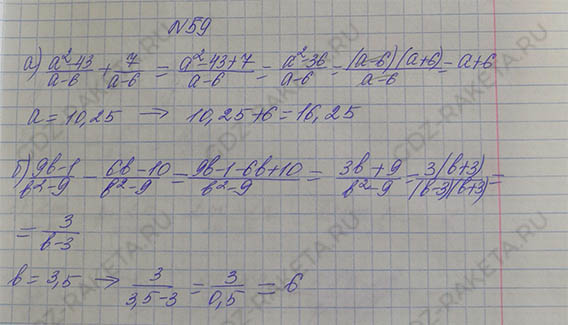 N59
а) a²-43/a-6 + 7/a-6 = a²-43+7/a-6 = a²-36/a-6 = (a-6)(a+6)/a-6 = a+6
a = 10,25 → 10,25+6 = 16,25
б) 9b-1/b²-9 - 6b-10/b²-9 = 9b-1-6b+10/b²-9 = 3b+9/b²-9 = 3(b+3)/(b-3)(b+3) =
= 3/b-3
b = 3,5 → 3/3,5-3 = 3/0,5 = 6
GDZ-RAKETA.RU